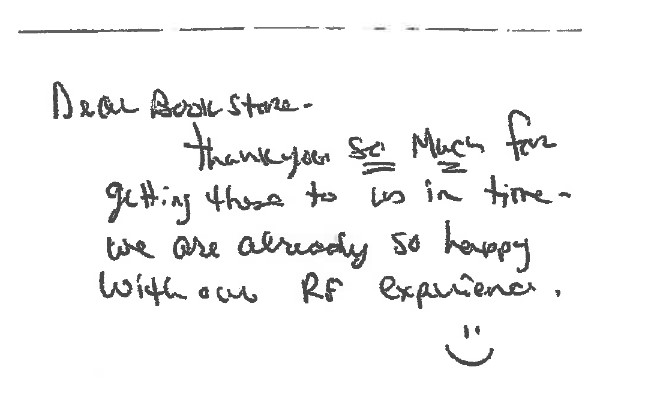 Dear Book Store -
Thank you so Much for
getting these to us in time -
we are already so happy
with our RF experience.